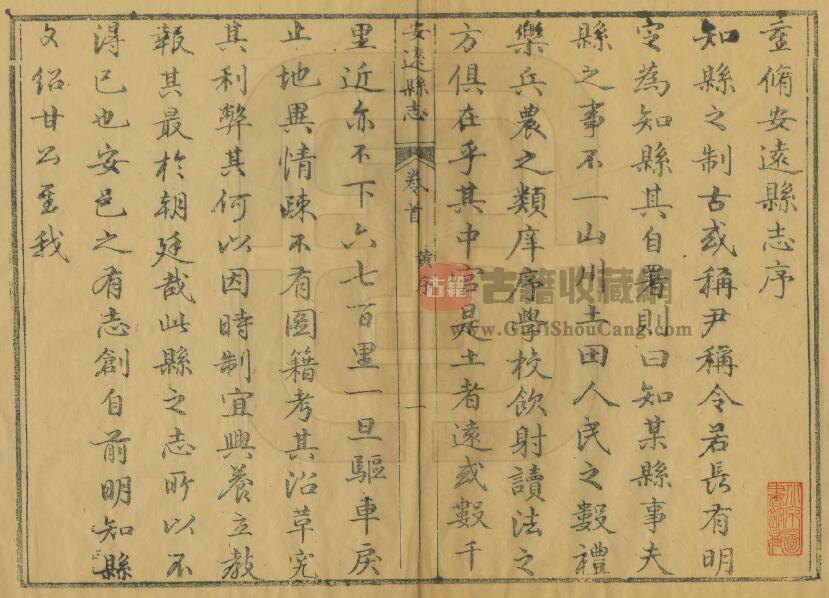 重脩安遠縣志序
知縣之制古或稱尹稱令若長有明
定為知縣其自署則曰知某縣事夫
縣之事不一山川土田人民之數禮
樂兵農之類庠序學校飲射讀法之
方俱在乎其中官是土者遠或數千
安遠縣志 卷首 黃序 一
里近亦不下六七百里一旦驅車戾
止地異情踈不有圖籍考其沿革究
其利弊其何以因時制宜興養立教
報其最於朝廷哉此縣之志所以不
得已也安邑之有志創自前明知縣
文紹甘公至我
古籍 古籍收藏網
www.GuJiShouCang.com